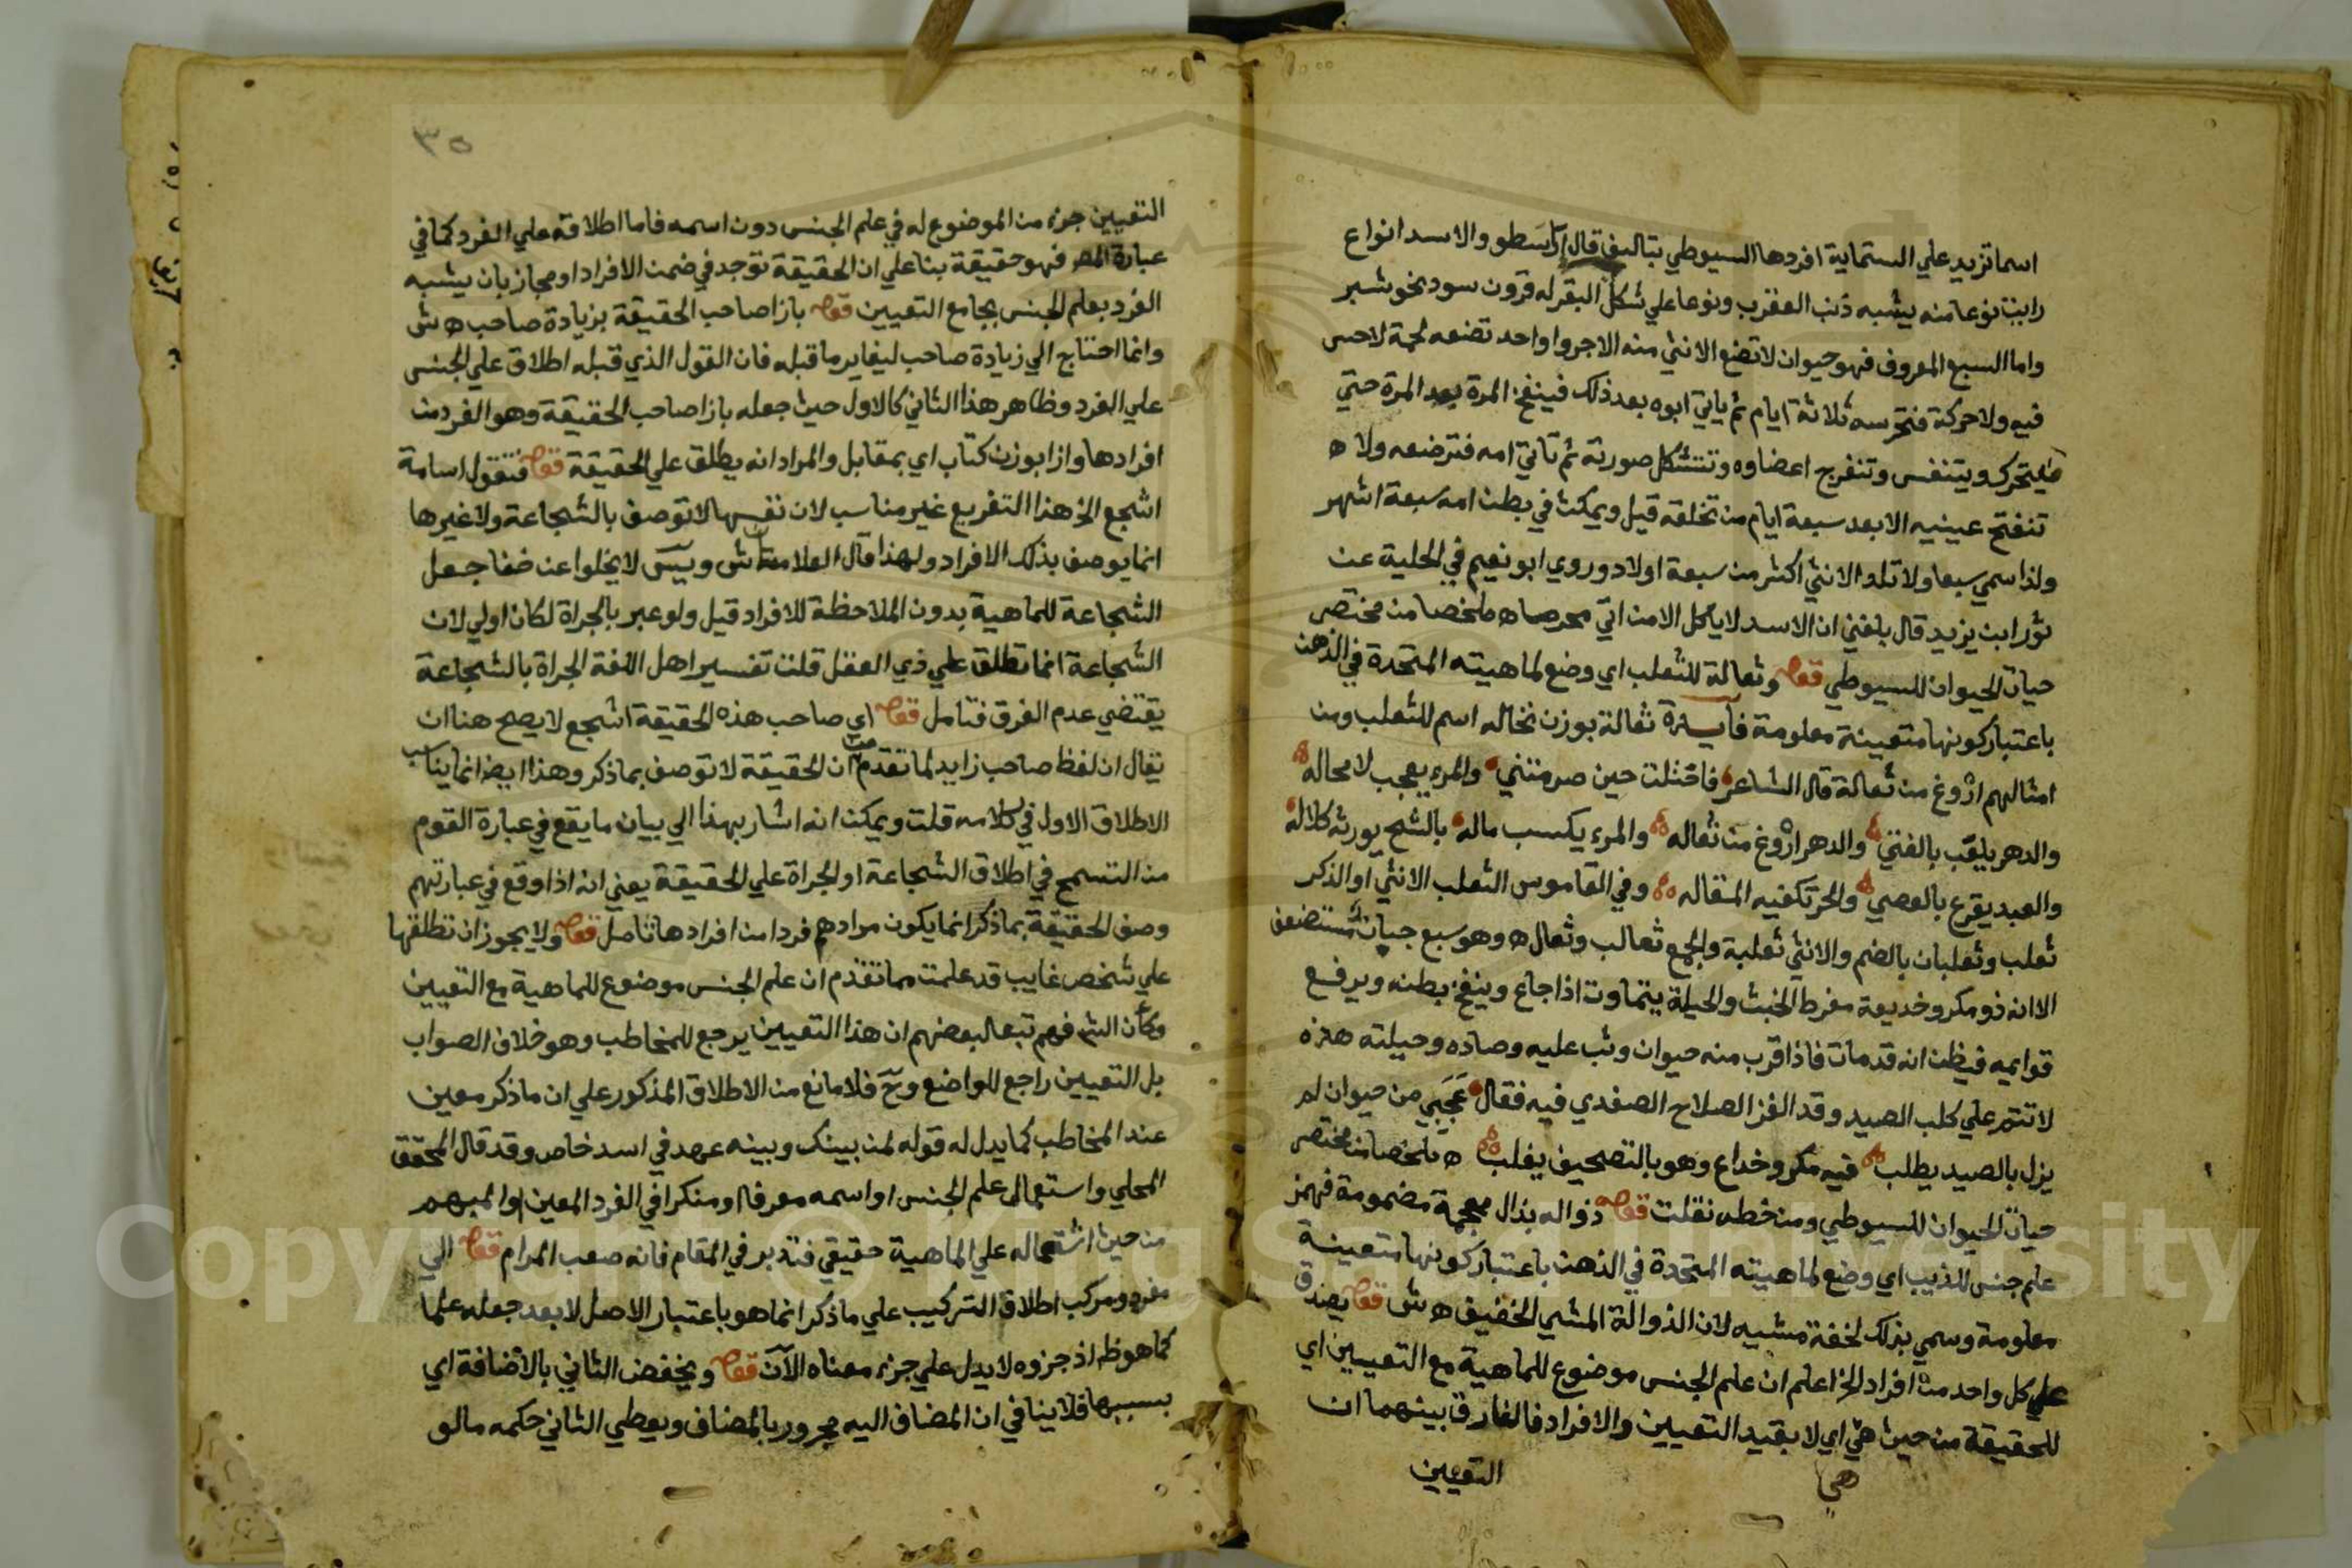 اسما تزيد علي الستماية افردها السيوطي بتاليف قال ارسطو والاسد انواع
رايت نوعا منه يشبه ذنب العقرب ونوعا علي شكل البقر له قرون سود نحو شبر
واما السبع المعروف فهو حيوان لا تضع الانثي منه الا جروا واحد تضعه لحمة لا حس
فيه ولا حركة فتحرسه ثلاثة ايام ثم ياتي ابوه بعد ذلك فينفخ المرة بعد المرة حتي
يتحرك ويتنفس وتنفرج اعضاوه وتتشكل صورته ثم تاتي امه فترضعه ولا
تنفتح عينيه الا بعد سبعة ايام من تخلقه قيل ويمكث في بطن امه سبعة اشهر
ولذا سمي سبعا ولا تلد الانثي اكثر من سبعة اولاد وروي ابو نعيم في الحلية عن
ثور ابن يزيد قال بلغني ان الاسد لا ياكل الا من اتي محرما ه ملخصا من مختصر
حياة الحيوان للسيوطي قوله وثعالة للثعلب اي وضع لماهيته المتحدة في الذهن
باعتبار كونها متعينة معلومة فايدة ثعالة بوزن نخاله اسم للثعلب ومن
امثالهم اروغ من ثعالة قال الشاعر فاحتلت حين صرمتني والمرء يعجب لا محاله
والدهر يلعب بالفتي والدهر اروغ من ثعاله والمرء يكسب ماله بالشح يورثه كلاله
والعبد يقرع بالعصي والحر تكفيه المقاله وفي القاموس الثعلب الانثي او الذكر
ثعلب وثعلبان بالضم والانثي ثعلبة والجمع ثعالب وثعال ه وهو سبع جبان مستضعف
الا انه ذو مكر وخديعة مفرط الخبث والحيلة يتماوت اذا جاع وينفخ بطنه ويرفع
قوايمه فيظن انه قد مات فاذا قرب منه حيوان وثب عليه وصاده وحيلته هذه
لا تتم علي كلب الصيد وقد الغز الصلاح الصفدي فيه فقال عجبي من حيوان لم
يزل بالصيد يطلب فيه مكر وخداع وهو بالتصحيف يغلب ه ملخصا من مختصر
حياة الحيوان للسيوطي ومن خطه نقلت قوله ذواله بذال معجمة مضمومة فهمز
علم جنس للذيب اي وضع لماهيته المتحدة في الذهن باعتبار كونها متعينة
معلومة وسمي بذلك لخفة مشيه لان الذوالة المشي الخفيف ه ش قوله يصدق
علي كل واحد من افراد الخ اعلم ان علم الجنس موضوع للماهية مع التعيين اي
للحقيقة من حيث هي اي لا بقيد التعيين والافراد فالفارق بينهما ان
هي
التعيين
٣٥
التعيين جزء من الموضوع له في علم الجنس دون اسمه فاما اطلاقه علي الفرد كما في
عبارة المص فهو حقيقة بنا علي ان الحقيقة توجد في ضمن الافراد او مجاز بان يشبه
الفرد بعلم الجنس بجامع التعيين قوله بازا صاحب الحقيقة بزيادة صاحب ه ش
وانما احتاج الي زيادة صاحب ليغاير ما قبله فان القول الذي قبله اطلاق علي الجنس
علي الفرد وظاهر هذا الثاني كالاول حيث جعله بازا صاحب الحقيقة وهو الفرد من
افرادها وازا بوزن كتاب اي بمقابل والمراد انه يطلق علي الحقيقة قوله فتقول اسامة
اشجع الخ هذا التفريع غير مناسب لان نفسها لا توصف بالشجاعة ولا غيرها
انما يوصف بذلك الافراد ولهذا قال العلامتان ش ويس لا يخلوا عن خفا جعل
الشجاعة للماهية بدون الملاحظة للافراد قيل ولو عبر بالجراة لكان اولي لان
الشجاعة انما تطلق علي ذي العقل قلت تفسير اهل اللغة الجراة بالشجاعة
يقتضي عدم الفرق فتامل قوله اي صاحب هذه الحقيقة اشجع لا يصح هنا ان
يقال ان لفظ صاحب زايد لما تقدم من ان الحقيقة لا توصف بما ذكر وهذا ايضا انما يناسب
الاطلاق الاول في كلامه قلت ويمكن انه اشار بهذا الي بيان ما يقع في عبارة القوم
من التسمح في اطلاق الشجاعة او الجراة علي الحقيقة يعني انه اذا وقع في عبارتهم
وصف الحقيقة بما ذكر انما يكون مرادهم فردا من افرادها تامل قوله ولا يجوز ان تطلقها
علي شخص غايب قد علمت مما تقدم ان علم الجنس موضوع للماهية مع التعيين
وكأن الش فهم تبعا لبعضهم ان هذا التعيين يرجع للمخاطب وهو خلاف الصواب
بل التعيين راجع للواضع وح فلا مانع من الاطلاق المذكور علي ان ما ذكر معين
عند المخاطب كما يدل له قوله لمن بينك وبينه عهد في اسد خاص وقد قال المحقق
المحلي واستعمال علم الجنس او اسمه معرفا او منكرا في الفرد المعين او المبهم
من حيث اشتماله علي الماهية حقيقي فتدبر في المقام فانه صعب المرام قوله الي
مفرد ومركب اطلاق التركيب علي ما ذكر انما هو باعتبار الاصل لا بعد جعله علما
كما هو ظ اذ جزوه لا يدل علي جزء معناه الآن قوله ويخفض الثاني بالاضافة اي
بسببها فلا ينافي ان المضاف اليه مجرور بالمضاف ويعطي الثاني حكمه ما لو
Copyright © King Saud University